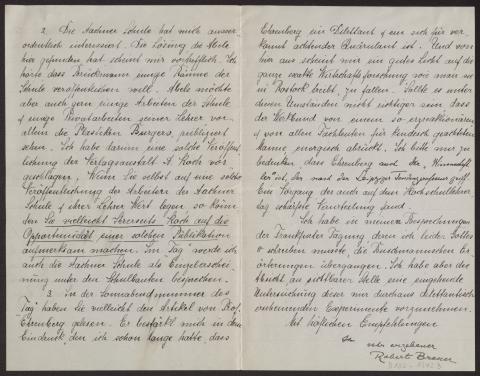 2. Die Aachner Schule hat mich ausser-
ordentlich interessiert. Die Lösung die Abele
hier gefunden hat scheint mir vorbildlich. Ich
hörte dass Bruckmann einige Räume der
Schule veröffentlichen will. Abele möchte
aber auch gern einige Arbeiten der Schule
& einige Privatarbeiten seiner Lehrer vor
allem die Plastiken Burgers, publiziert
sehen. Ich habe darum eine solche Veröffent-
lichung der Verlagsanstalt A. Koch vor-
geschlagen. Wenn Sie selbst auf eine solche
Veröffentlichung der Arbeiten der Aachner
Schule & ihrer Lehrer Wert legen so könn-
ten Sie vielleicht Ihrerseits Koch auf die
Opportunität einer solchen Publikation
aufmerksam machen. Im "Tag" werde ich
auch die Aachner Schule als Eingelaschei-
nung unter den Schulbauten besprechen.
3. In der Sonnabendnummer des
"Tag" haben Sie vielleicht den Artikel von Prof.
Ehrenberg gelesen. Er bestärkt mich in dem
Eindruck, den ich schon lange hatte, dass
Ehrenberg ein Dilettant & ein sich für ver-
kannt achtender Querulant ist. Und von
hier aus scheint mir ein gutes Licht auf die
ganze exakte Wirtschaftsforschung wie man sie
in Rostock treibt, zu fallen. Sollte es unter
diesen Umständen nicht richtiger sein dass
der Werkbund von einem so
& von allen Fachleuten für kindisch geachteten
Manne energisch abrückt. Ich bitte auch zu
bedenken dass Ehrenberg auch der "Wissenschaft-
ler" ist, der nach der Leipziger griff.
Ein Vorgang der auch auf dem Hochschullehrer-
tag schärfste Verurteilung fand.
Ich habe in meinen Besprechungen
der Frankfurter Tagung deren ich leider
schreiben musste, die Er-
örterungen übergangen. Ich habe aber die
Absicht an sichtbarer Stelle eine eingehende
Untersuchung dieser mir durchaus dilettantisch
vorkommenden Experimente vorzunehmen.
Mit höflichen Empfehlungen
Ihr
sehr ergebener
Robert Breuer